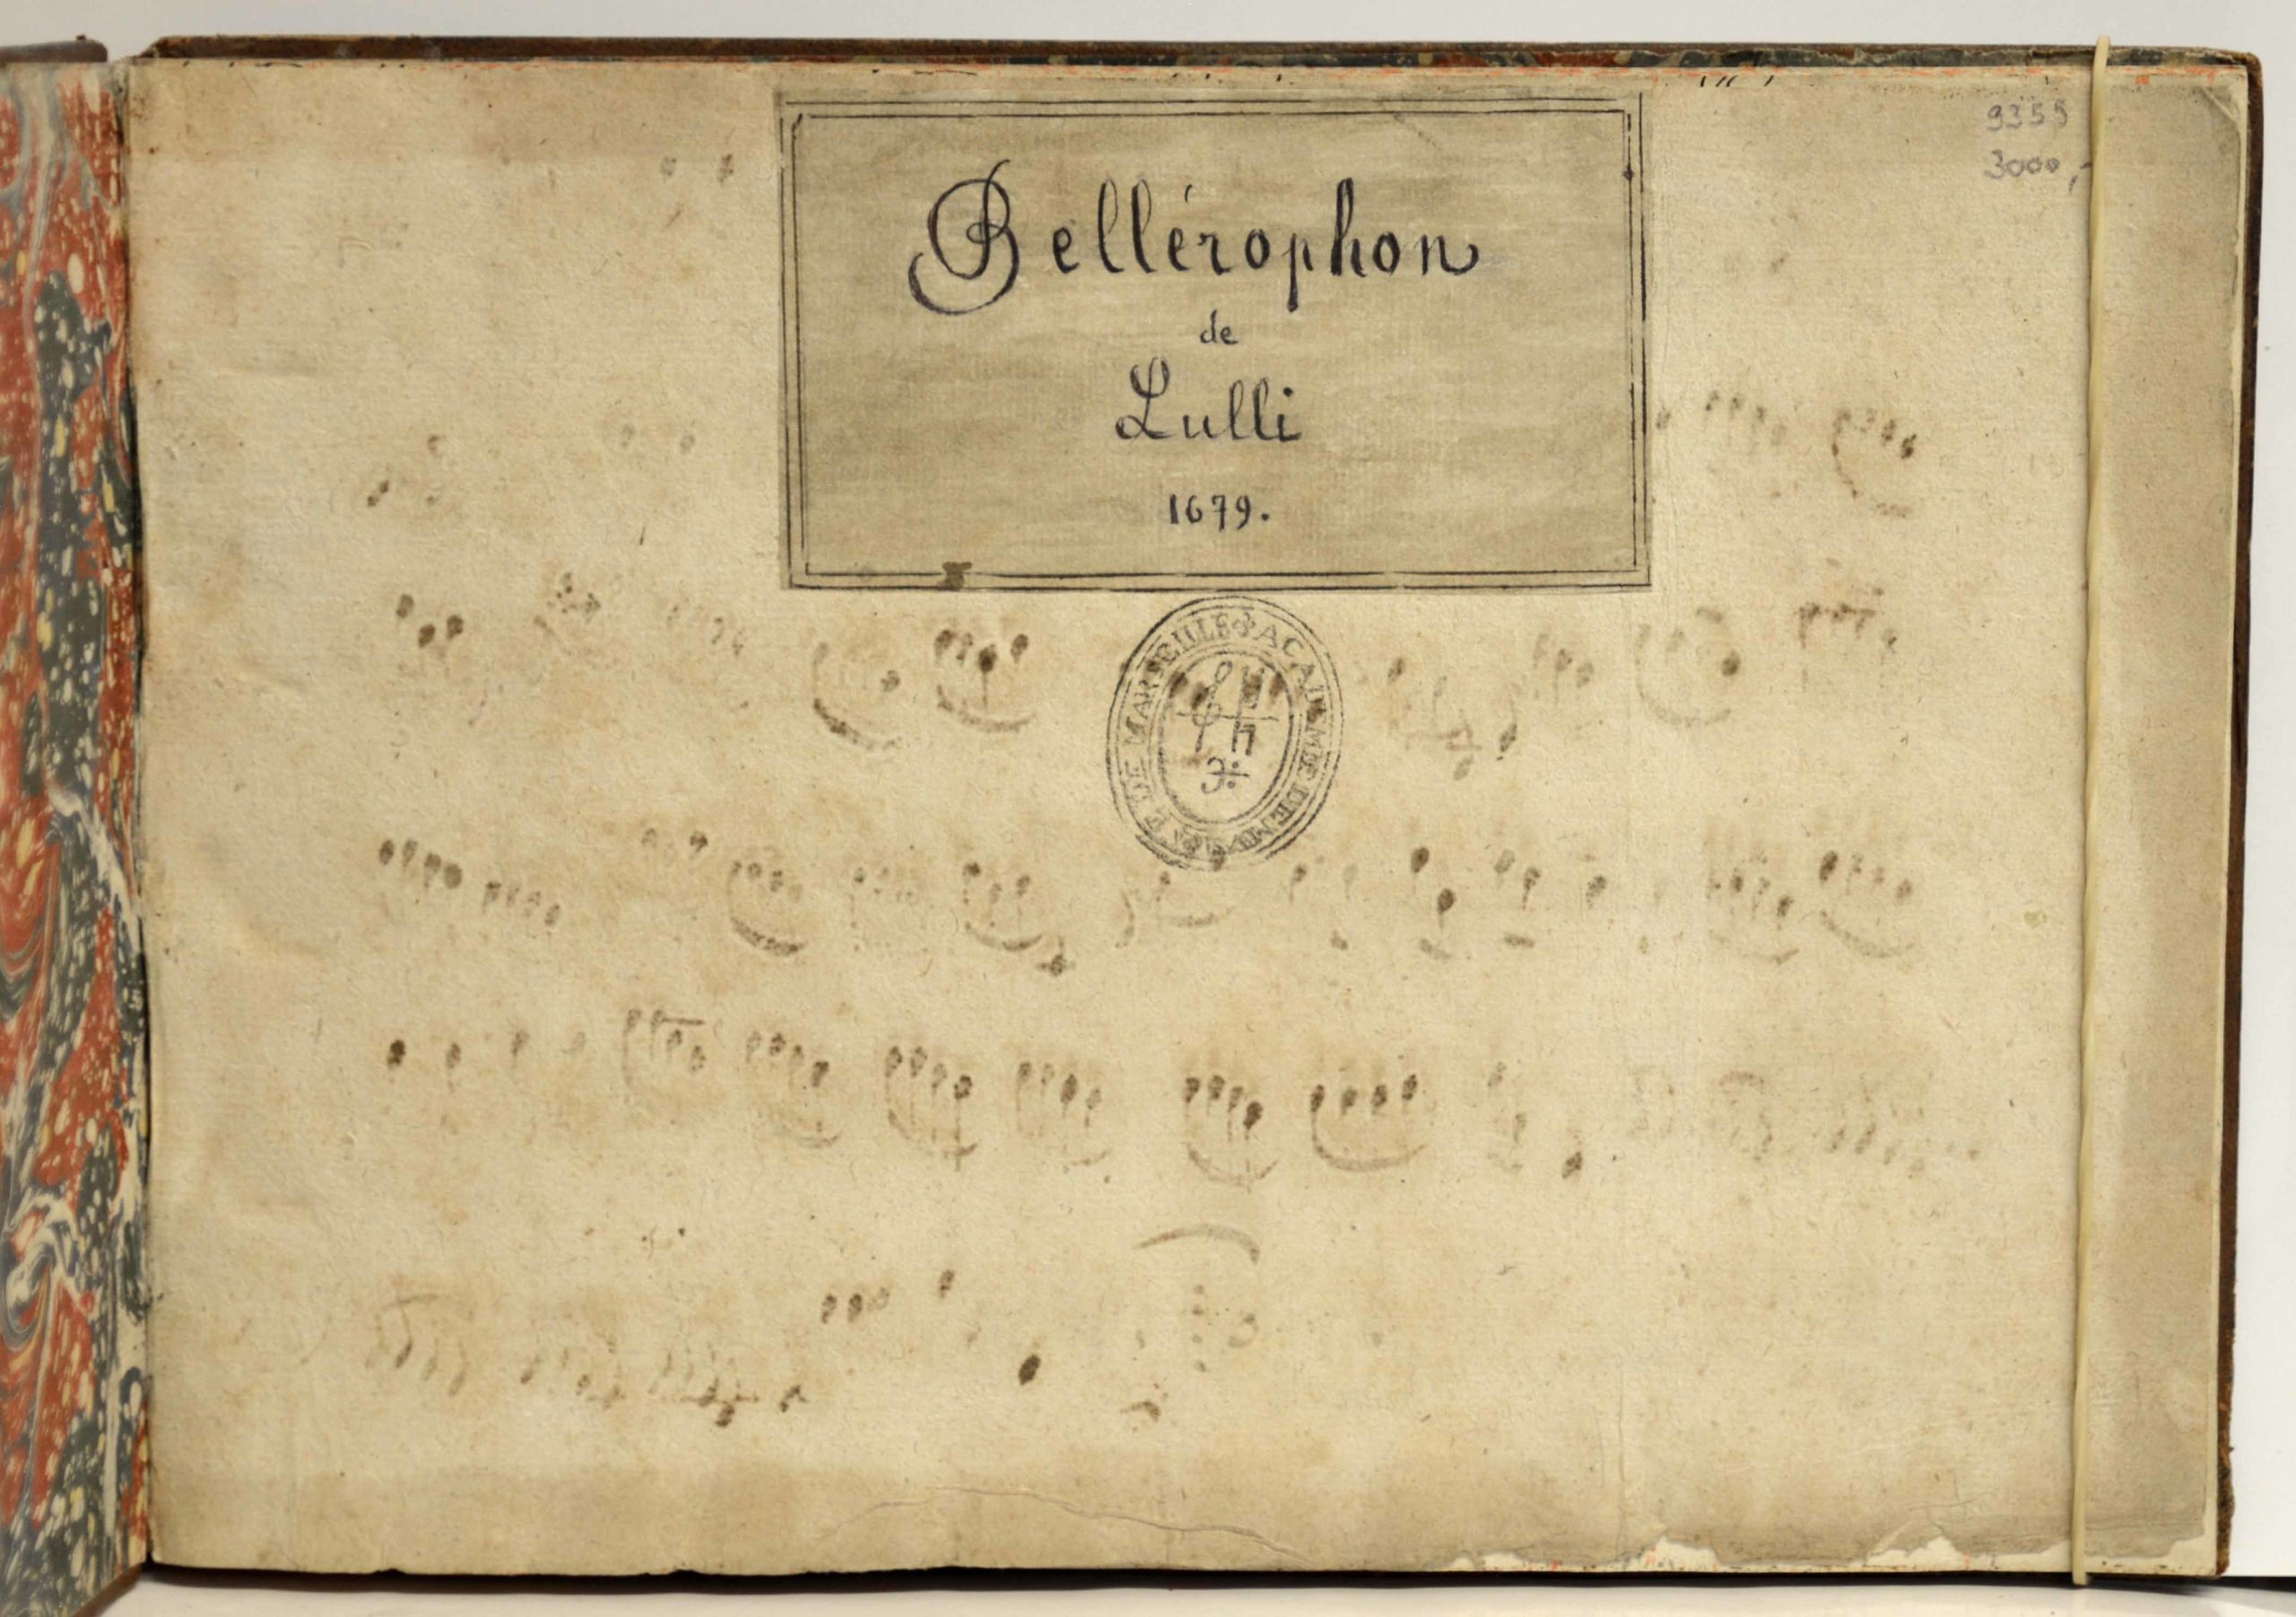 9355
3000,-
Bellérophon
de
Lulli
1679.
ACADEMIE DE MUSIQUE DE MARSEILLE